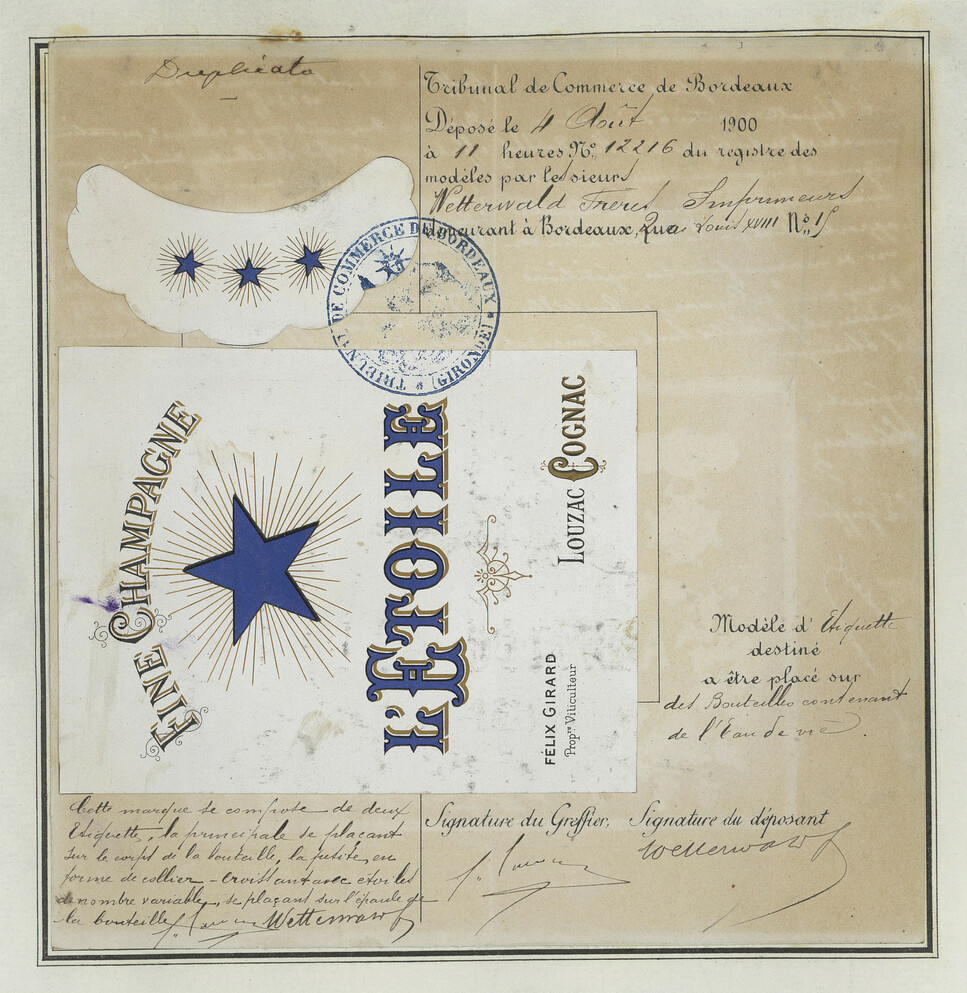 Duplicata
Tribunal de Commerce de Bordeaux
Déposé le 4 Août 1900
à 11 heures No. 12216 du registre des
modèles par les sieurs
Wetterwald Frères Imprimeurs
demeurant à Bordeaux, Quai Louis XVIII No.
TRIBUNAL DE COMMERCE DE BORDEAUX * (GIRONDE) *
FINE CHAMPAGNE
L'ETOILE
LOUZAC COGNAC
FÉLIX GIRARD
Propre Viticulteur
Modèle d' Etiquette
destiné
a être placé sur
des Bouteilles contenant
de l'Eau de vie.
Cette marque se compose de deux
Etiquettes, la principale se plaçant
sur le corps de la bouteille, la petite, en
forme de collier - croissant avec étoiles
de nombre variable, se plaçant sur l'épaule de
la bouteille
Wetterwald
Signature du Greffier, Signature du déposant
Wetterwald